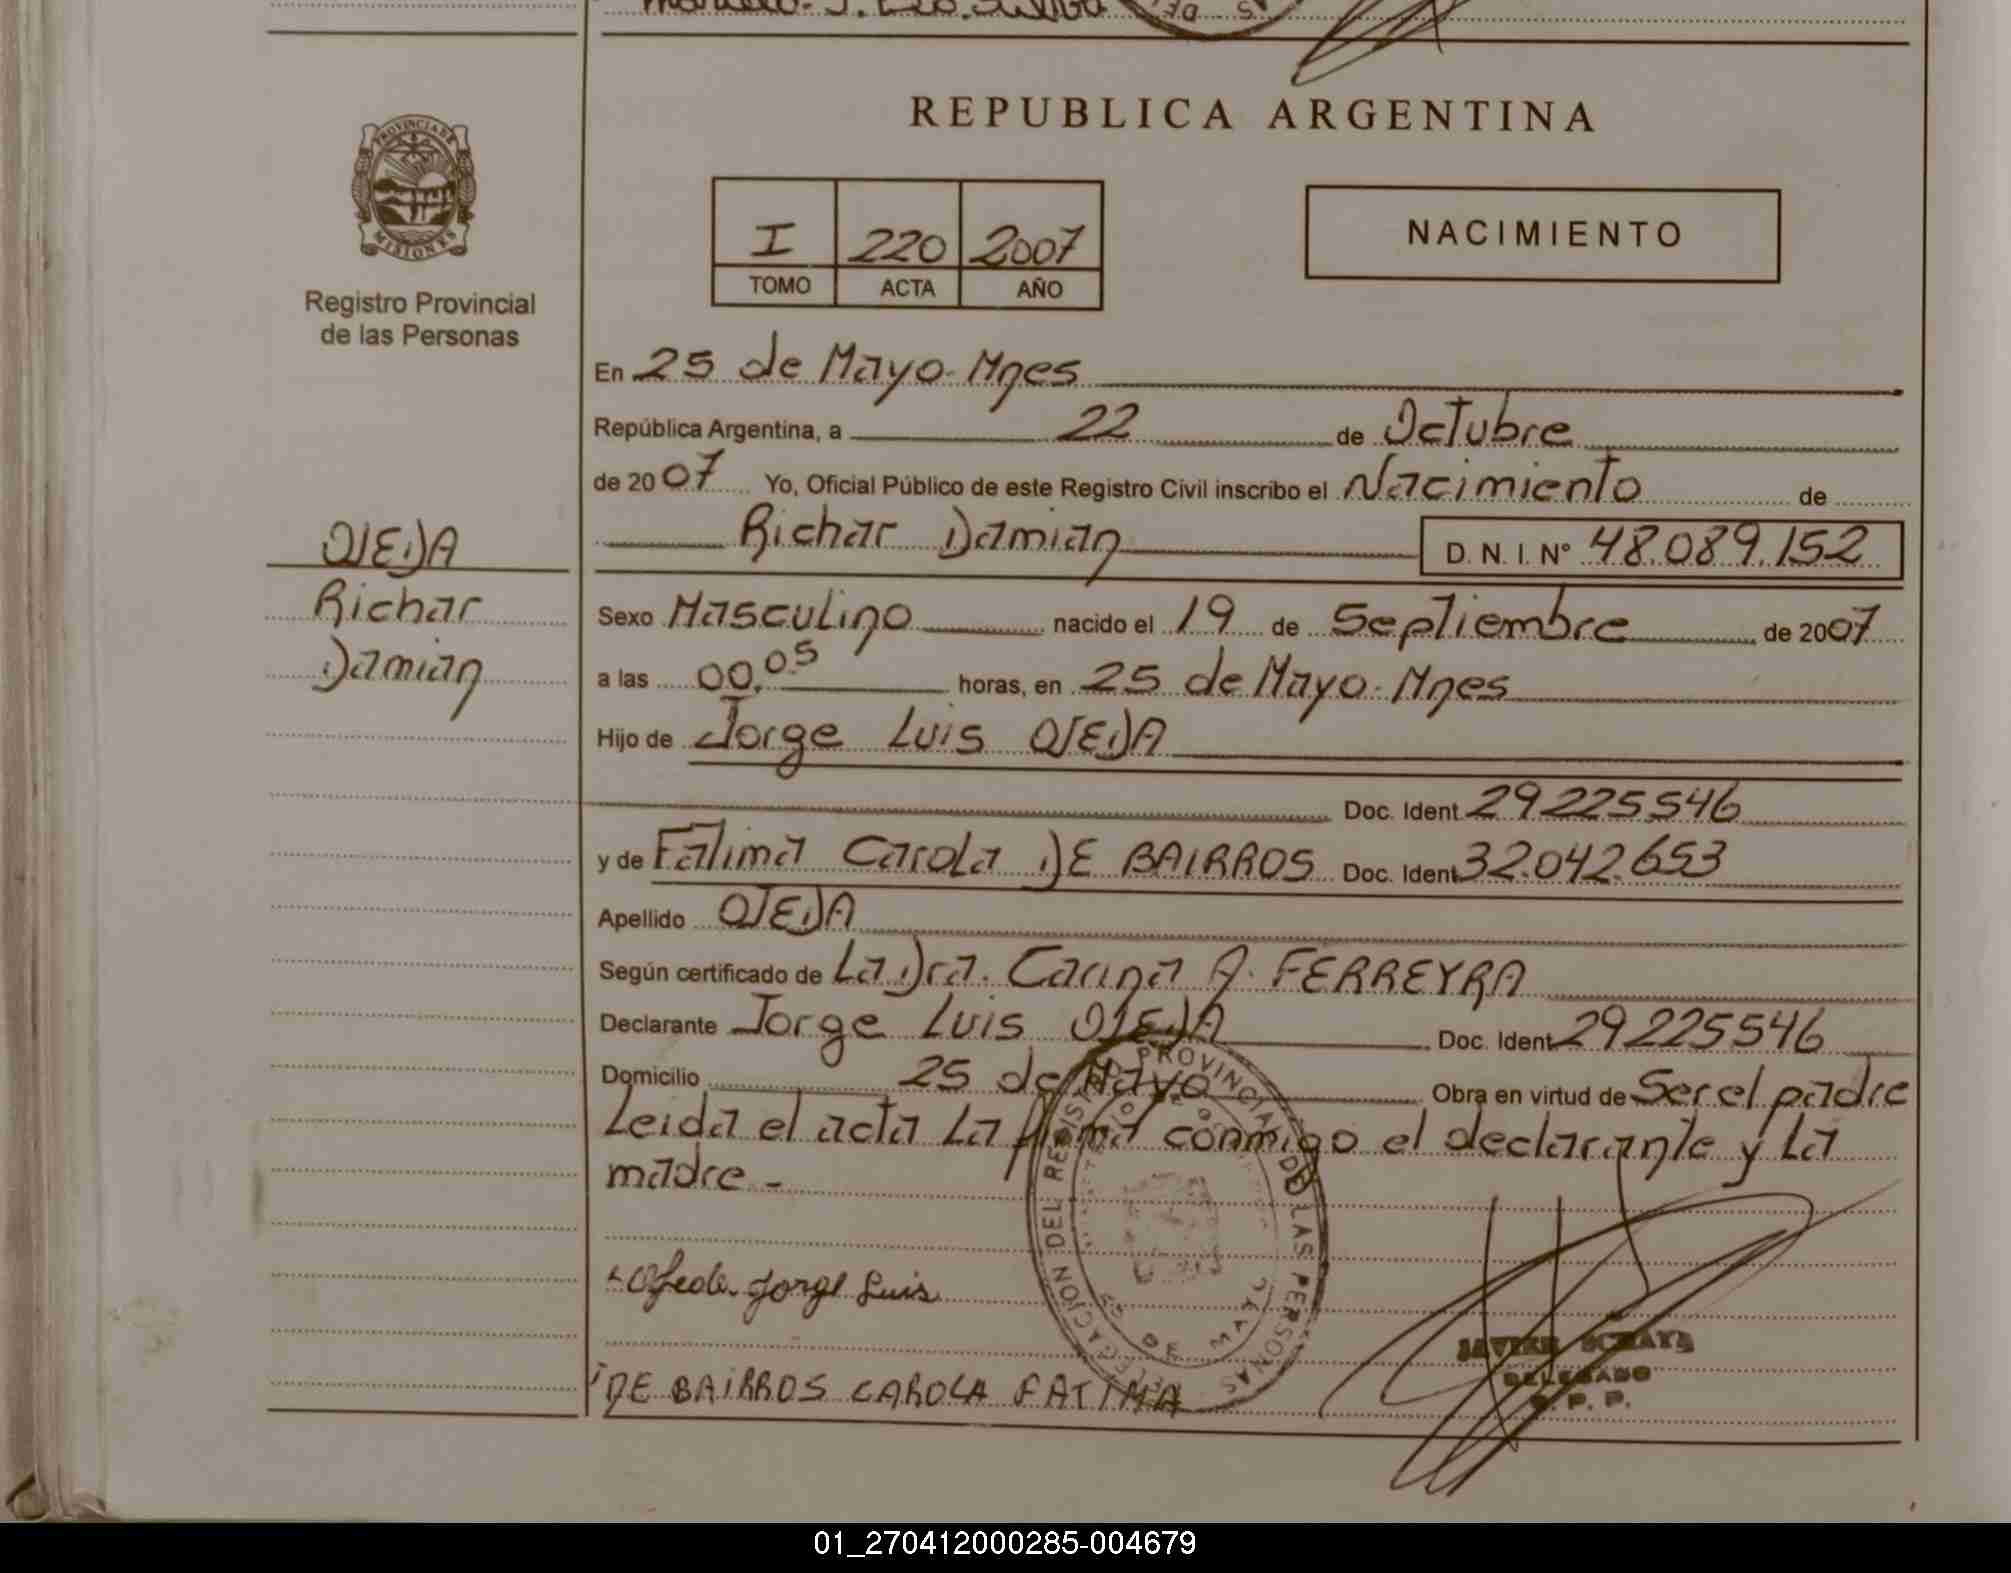 REPUBLICA ARGENTINA
PROVINCIA DE
MISIONES
Registro Provincial
de las Personas
I 220 2007
TOMO ACTA AÑO
NACIMIENTO
En 25 de Mayo-Mnes
República Argentina, a 22 de Octubre
de 2007 Yo, Oficial Público de este Registro Civil inscribo el Nacimiento de
OJEDA
Richar
Damian
Richar Damian D. N. I. Nº 48.089.152
Sexo Masculino nacido el 19 de Septiembre de 2007
a las 00,05 horas, en 25 de Mayo-Mnes
Hijo de Jorge Luis OJEDA
Doc. Ident. 29225546
y de Fatima Carola DE BAIRROS Doc. Ident. 32.042.653
Apellido OJEDA
Según certificado de La Dra. Carina A. FERREYRA
Declarante Jorge Luis OJEDA Doc. Ident. 29225546
Domicilio 25 de Mayo Obra en virtud de Ser el padre
Leida el acta La firma conmigo el declarante y La
madre -
Ojeda Jorge Luis
DE BAIRROS CAROLA FATIMA
DELEGACION DEL REGISTRO PROVINCIAL DE LAS PERSONAS
25 DE MAYO
JAVIER
DELEGADO
R. P. P.
01_270412000285-004679